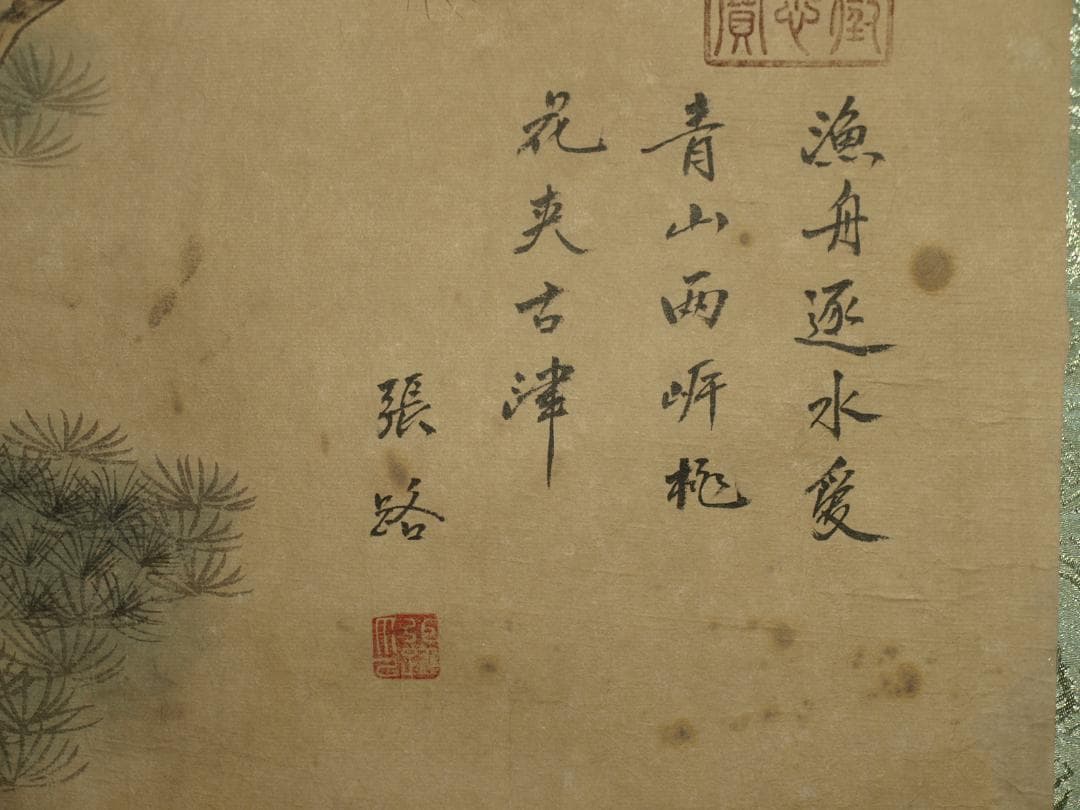 漁舟逐水愛
青山兩岸桃
花夾古津
張路